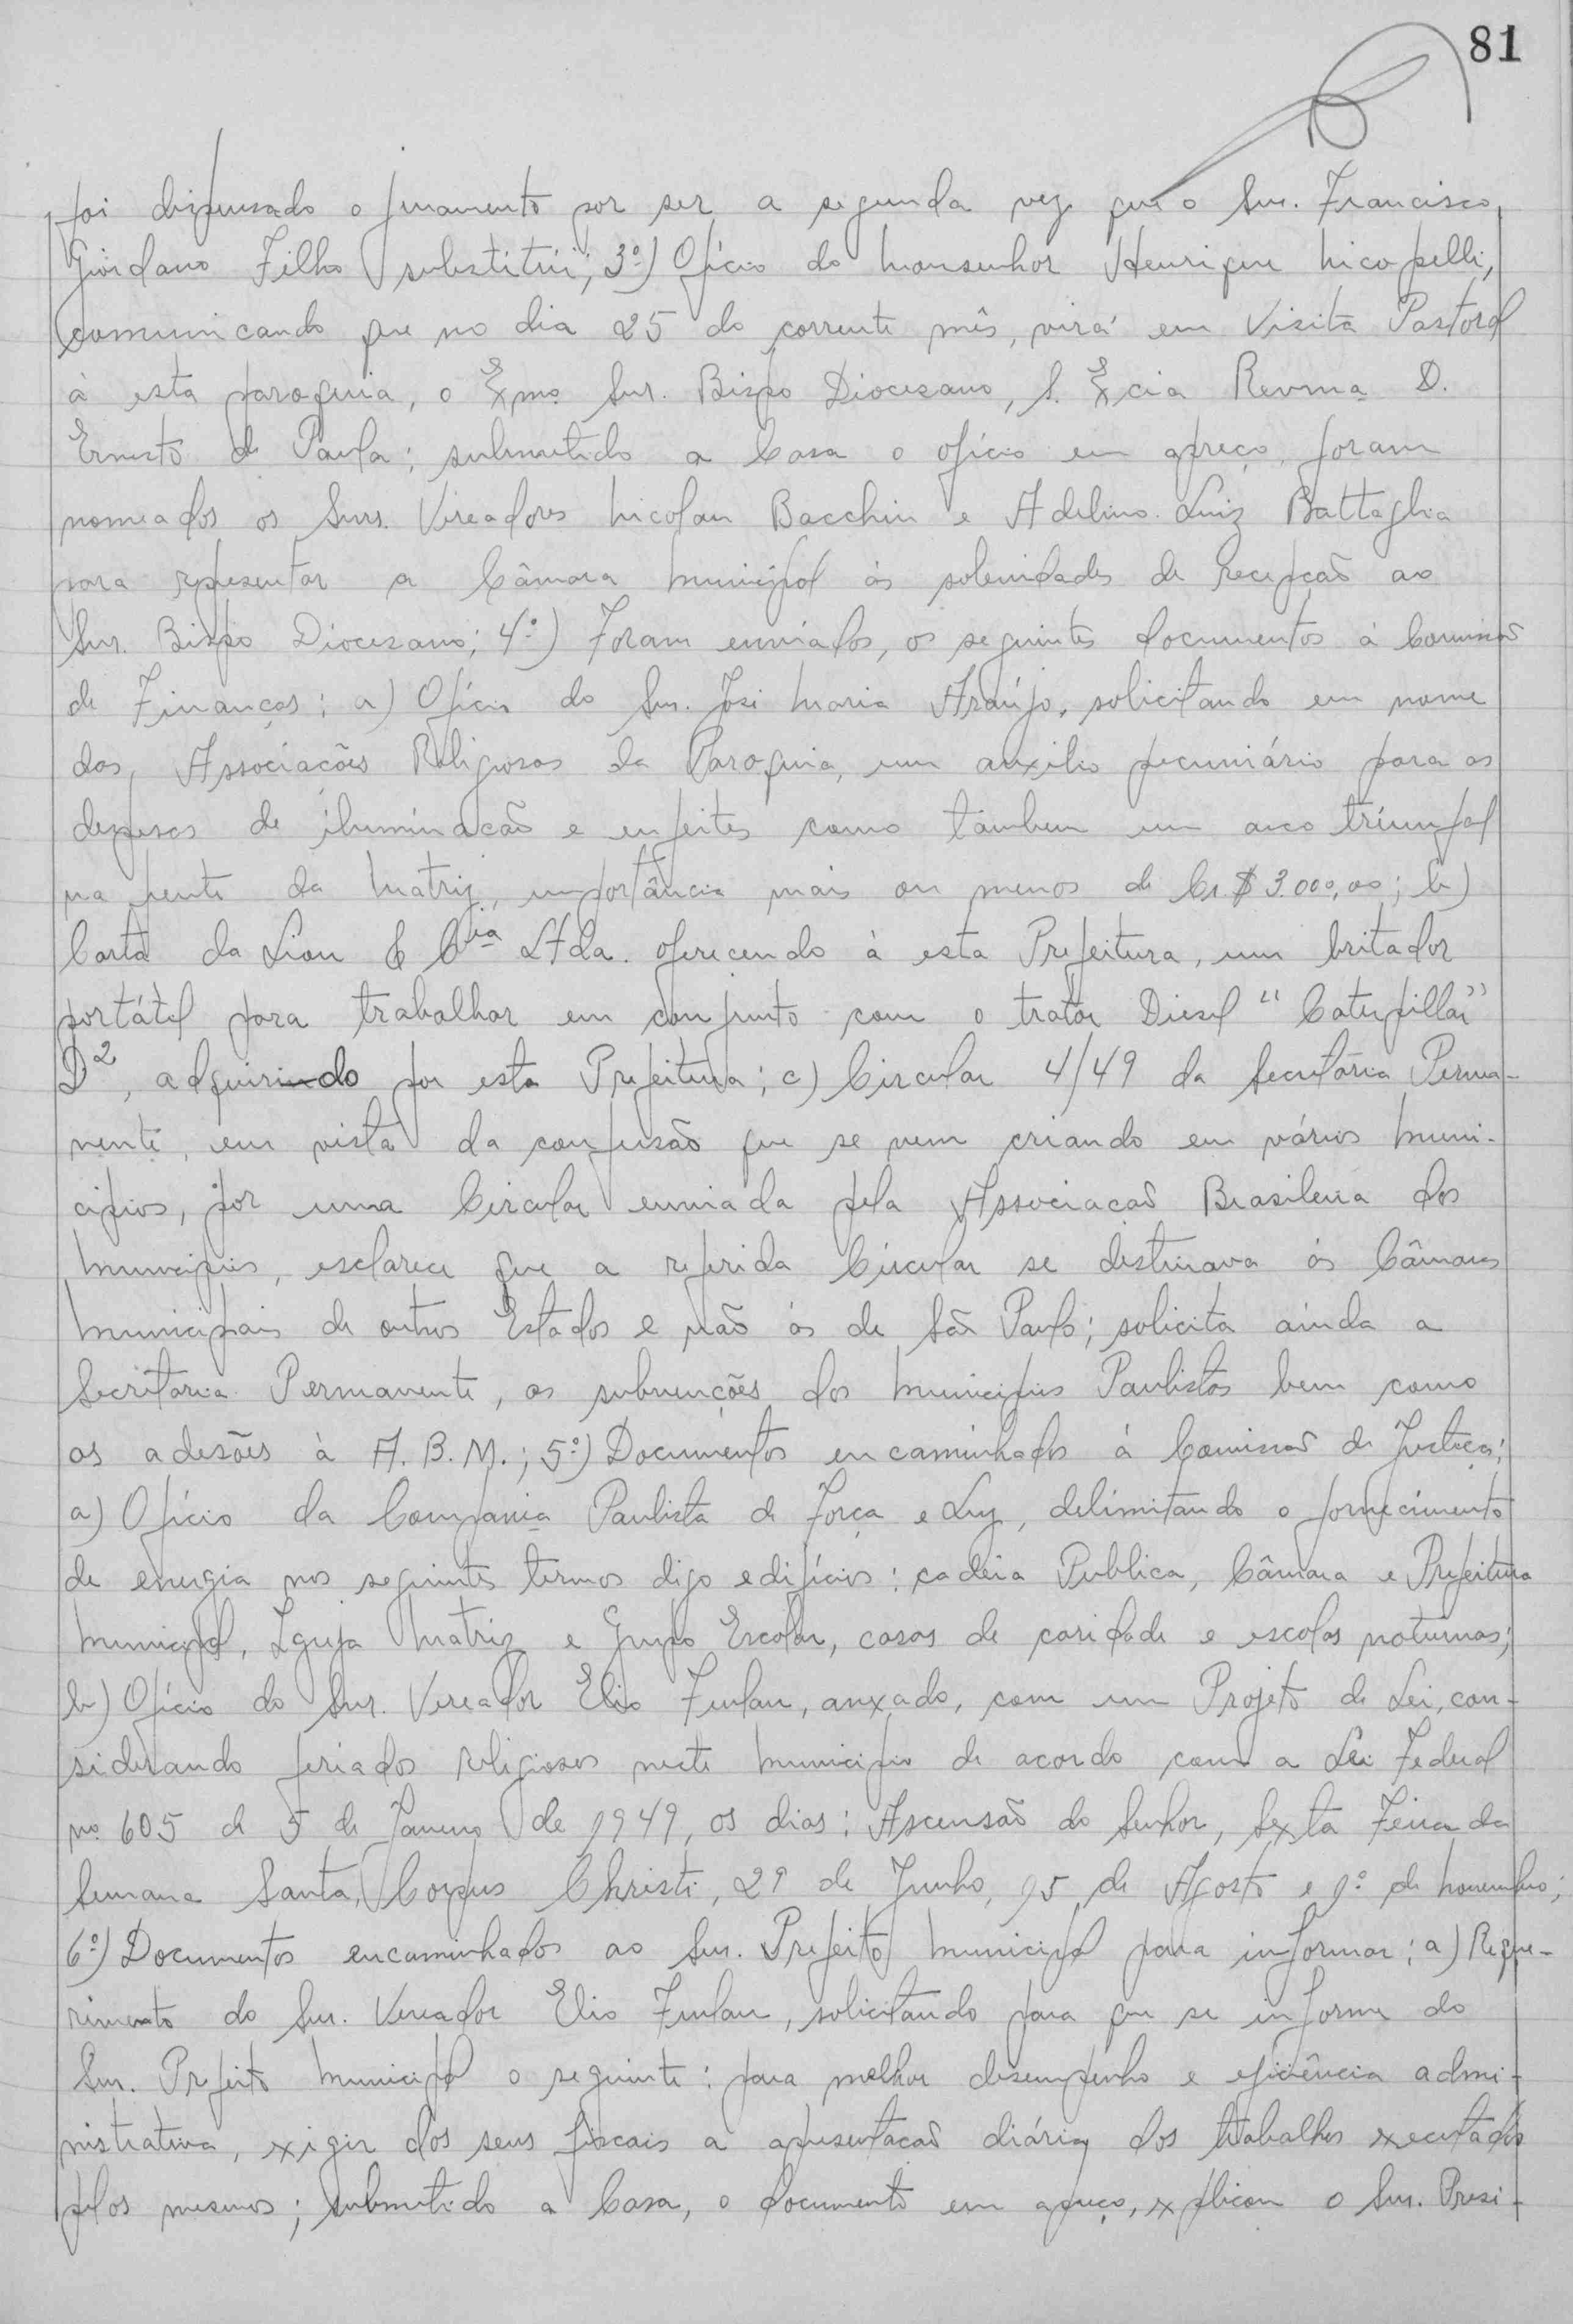 81
foi dispensado o juramento por ser a segunda vez que o Snr. Francisco
Giordano Filho substitúi; 3º) Ofício do Monsenhor Henrique Nicopelli,
comunicando que no dia 25 do corrente mês, virá em Visita Pastoral
à esta paroquia, o Exmo Snr. Bispo Diocesano, S. Excia Revma D.
Ernesto de Paula; submetido a Casa o ofício em apreço, foram
nomeados os Snrs. Vereadores Nicolau Bacchin e Adelino Luiz Battaglia
para representar a Câmara Municipal ás solenidades de recepção ao
Snr. Bispo Diocesano; 4º) Foram enviados, os seguintes documentos á Comissão
de Finanças; a) Ofício do Snr. José Maria Araújo, solicitando em nome
das Associações Religiosas da Paroquia, um auxilio pecuniário para as
despesas de iluminação e enfeites como tambem um arco triunfal
na frente da Matriz, importância mais ou menos de Cr.$ 3.000,00; b)
Carta da Lion & Cia Ltda. oferecendo à esta Prefeitura, um britador
portátil para trabalhar em conjunto com o trator Diesel "Caterpillar"
D2, adquirindo por esta Prefeitura; c) Circular 4/49 da Secretária Perma-
nente, em vista da confusão que se vem criando em vários Muni-
cipios, por uma Circular enviada pela Associacão Brasileira dos
Municipios, esclarece que a referida Circular se destinava ás Câmaras
Municipais de outros Estados e não ás de São Paulo; solicita ainda a
Secretaria Permanente, as subvenções dos Municipios Paulistas bem como
as adesões à A.B.M.; 5º) Documentos encaminhados á Comissão de Justiça;
a) Ofício da Compania Paulista de Força e Luz, delimitando o fornecimento
de energia nos seguintes termos digo edifícios: cadeia Publica, Câmara e Prefeitura
Municipal, Igreja Matriz e Grupo Escolar, casas de caridade e escolas noturnas;
b) Ofício do Snr. Vereador Elio Furlan, anxado, com um Projeto de Lei, con-
siderando feriados religiosos neste Municipio de acordo com a Lei Federal
nº 605 de 5 de Janeiro de 1949, os dias: Ascensão do Senhor, Sexta Feira da
Semana Santa, Corpus Christi, 29 de Junho, 15 de Agosto e 1º de Novembro;
6º) Documentos encaminhados ao Snr. Prefeito Municipal para informar: a) Reque-
rimento do Snr. Vereador Elio Furlan, solicitando para que se informe do
Snr. Prefeito Municipal o seguinte: para melhor desempenho e eficiência admi-
nistrativa, exigir dos seus fiscais a apresentacão diária dos trabalhos executados
pelos mesmos; submetido a Casa, o documento em apreço, explicou o Snr. Presi-